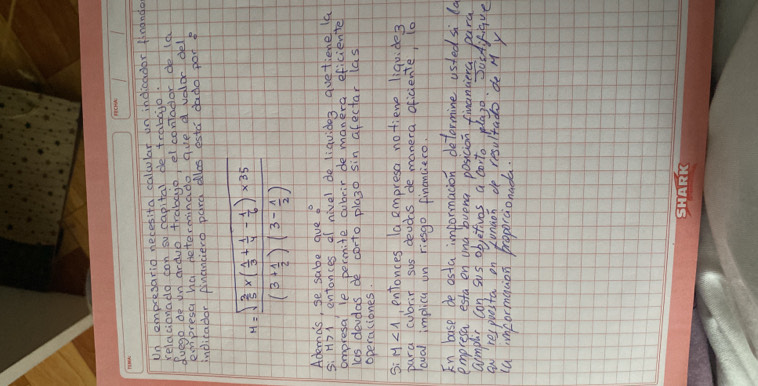 FECHA
Un empresario necesita calcular un indicador financiero
relacionado con su capital de trabajo.
Luego de un arduo trabajo, el contador de la
empresa ha determinado que el valor del
indicador financiero para ellos está dado por:
M = √(2/5 × (1/3 + 1/4 - 1/6) × 35
(3 + 1/2) (3 - 1/2)
Además, se sabe que:
Si M > 1 entonces el nivel de liquidez que tiene la
empresa le permite cubrir de manera eficiente
las deudas de corto plazo sin afectar las
operaciones.
Si M < 1, entonces la empresa no tiene liquidez
para cubrir sus deudas de manera eficiente, lo
cual implica un riesgo financiero.
En base de esta información determine usted si la
empresa está en una buena posición financiera para
cumplir con sus objetivos a corto plazo. Justifique
su respuesta en función el resultado de M y
la información proporcionada.
SHARK